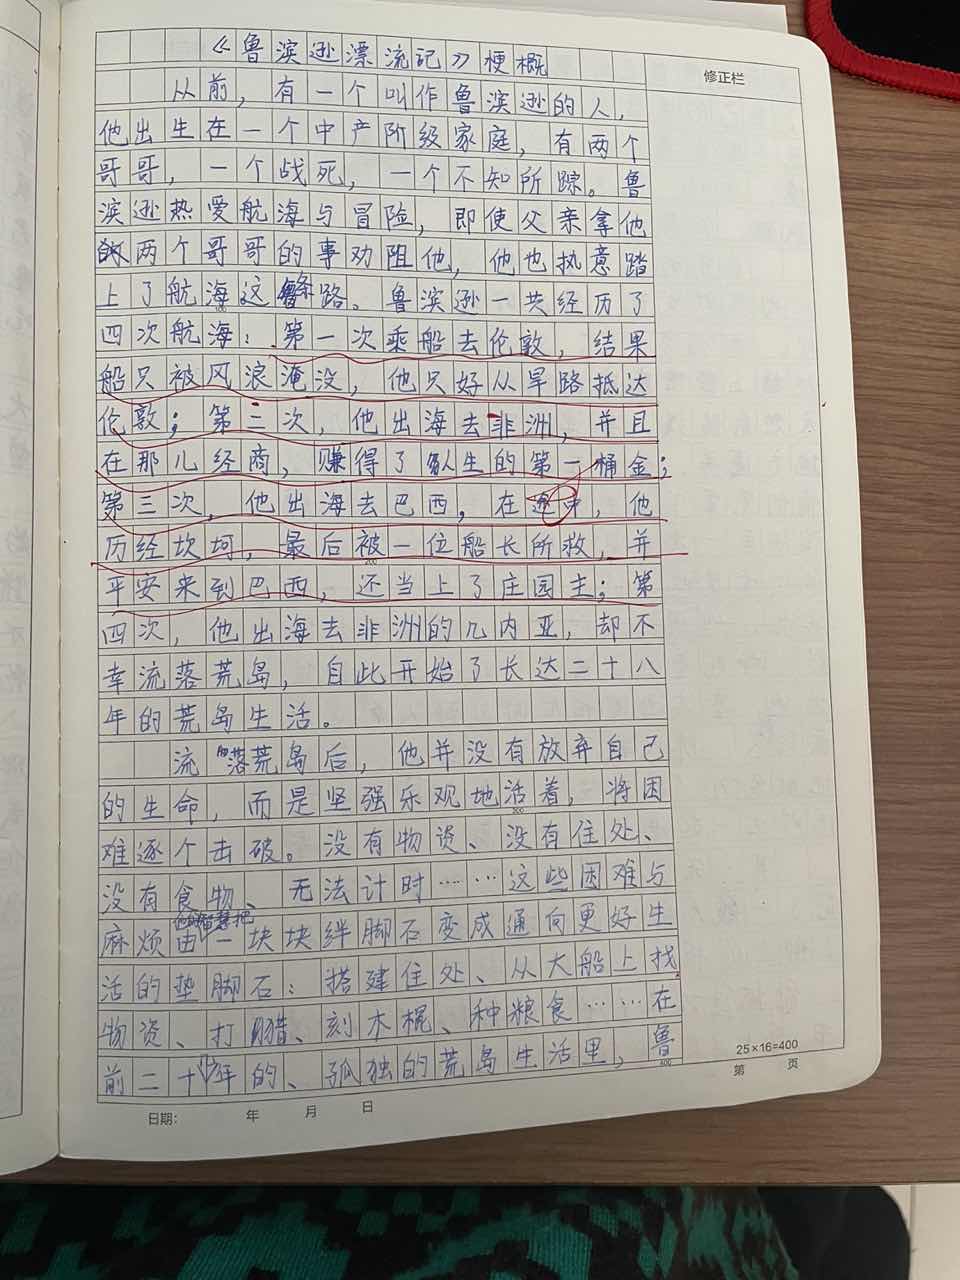 《鲁滨逊漂流记》梗概
修正栏
从前，有一个叫作鲁滨逊的人，
他出生在一个中产阶级家庭，有两个
哥哥，一个战死，一个不知所踪。鲁
滨逊热爱航海与冒险，即使父亲拿他
两个哥哥的事劝阻他，他也执意踏
上了航海这条路。鲁滨逊一共经历了
四次航海：第一次乘船去伦敦，结果
船只被风浪淹没，他只好从旱路抵达
伦敦；第二次，他出海去非洲，并且
在那儿经商，赚得了人生的第一桶金；
第三次，他出海去巴西，在途中，他
历经坎坷，最后被一位船长所救，并
平安来到巴西，还当上了庄园主；第
四次，他出海去非洲的几内亚，却不
幸流落荒岛，自此开始了长达二十八
年的荒岛生活。
流落荒岛后，他并没有放弃自己
的生命，而是坚强乐观地活着，将困
难逐个击破。没有物资、没有住处、
没有食物、无法计时……这些困难与
他用智慧把
麻烦由一块块绊脚石变成通向更好生
活的垫脚石：搭建住处、从大船上找
物资、打猎、刻木棍、种粮食……在
前二十几年的、孤独的荒岛生活里，鲁
25×16=400
第 页
日期： 年 月 日